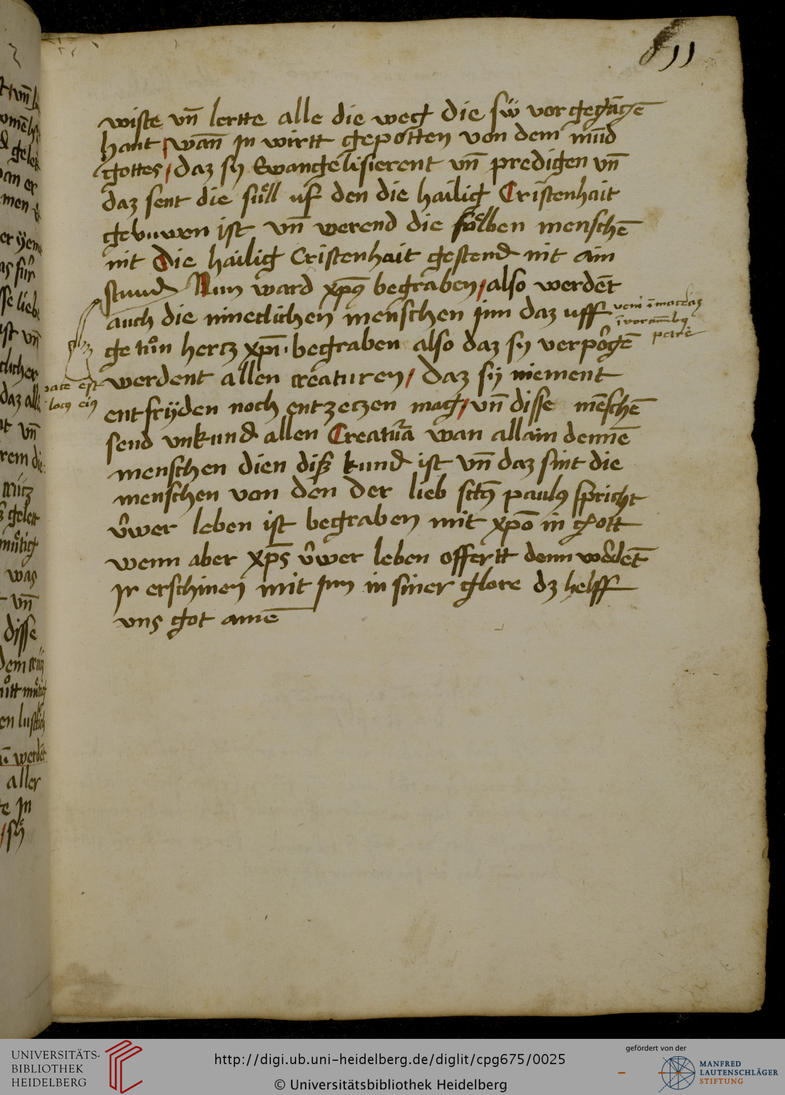 11
wiste vñ lertte alle die weg die sÿ vor gegāgē
hant / wañ jn wirtt gepotten von dem mūd
gottes / daz sy Ewangelisierent vñ predigen vñ
daz sent die sùll uf den die hailig Cristenhait
gebuwen ist vñ werend die sölben menschē
nit die hailig Cristenhait gestend nit ain
stund Nun ward xp̄s begraben / also werdēt
auch die minetlichen menschen jnn daz uff
ge tūn hertz xp̄i begraben also daz sy verporgē
werdent allen creaturen / daz sy niement
entfryden noch entzetzen mag / vñ disse mēschē
send vnkund allen Creatura wan allain dennē
menschen dien diß kund ist vñ daz sint die
menschen von den der lieb sct̄s paulus spricht
ŭwer leben ist begraben mit xp̄o in gott
wenn aber xp̄s ŭwer leben offertt denn werdēt
jr erschinen mit jm in siner glore dz helff
vns got amē
UNIVERSITÄTS-
BIBLIOTHEK
HEIDELBERG
http://digi.ub.uni-heidelberg.de/diglit/cpg675/0025
© Universitätsbibliothek Heidelberg
gefördert von der
MANFRED
LAUTENSCHLÄGER
STIFTUNG